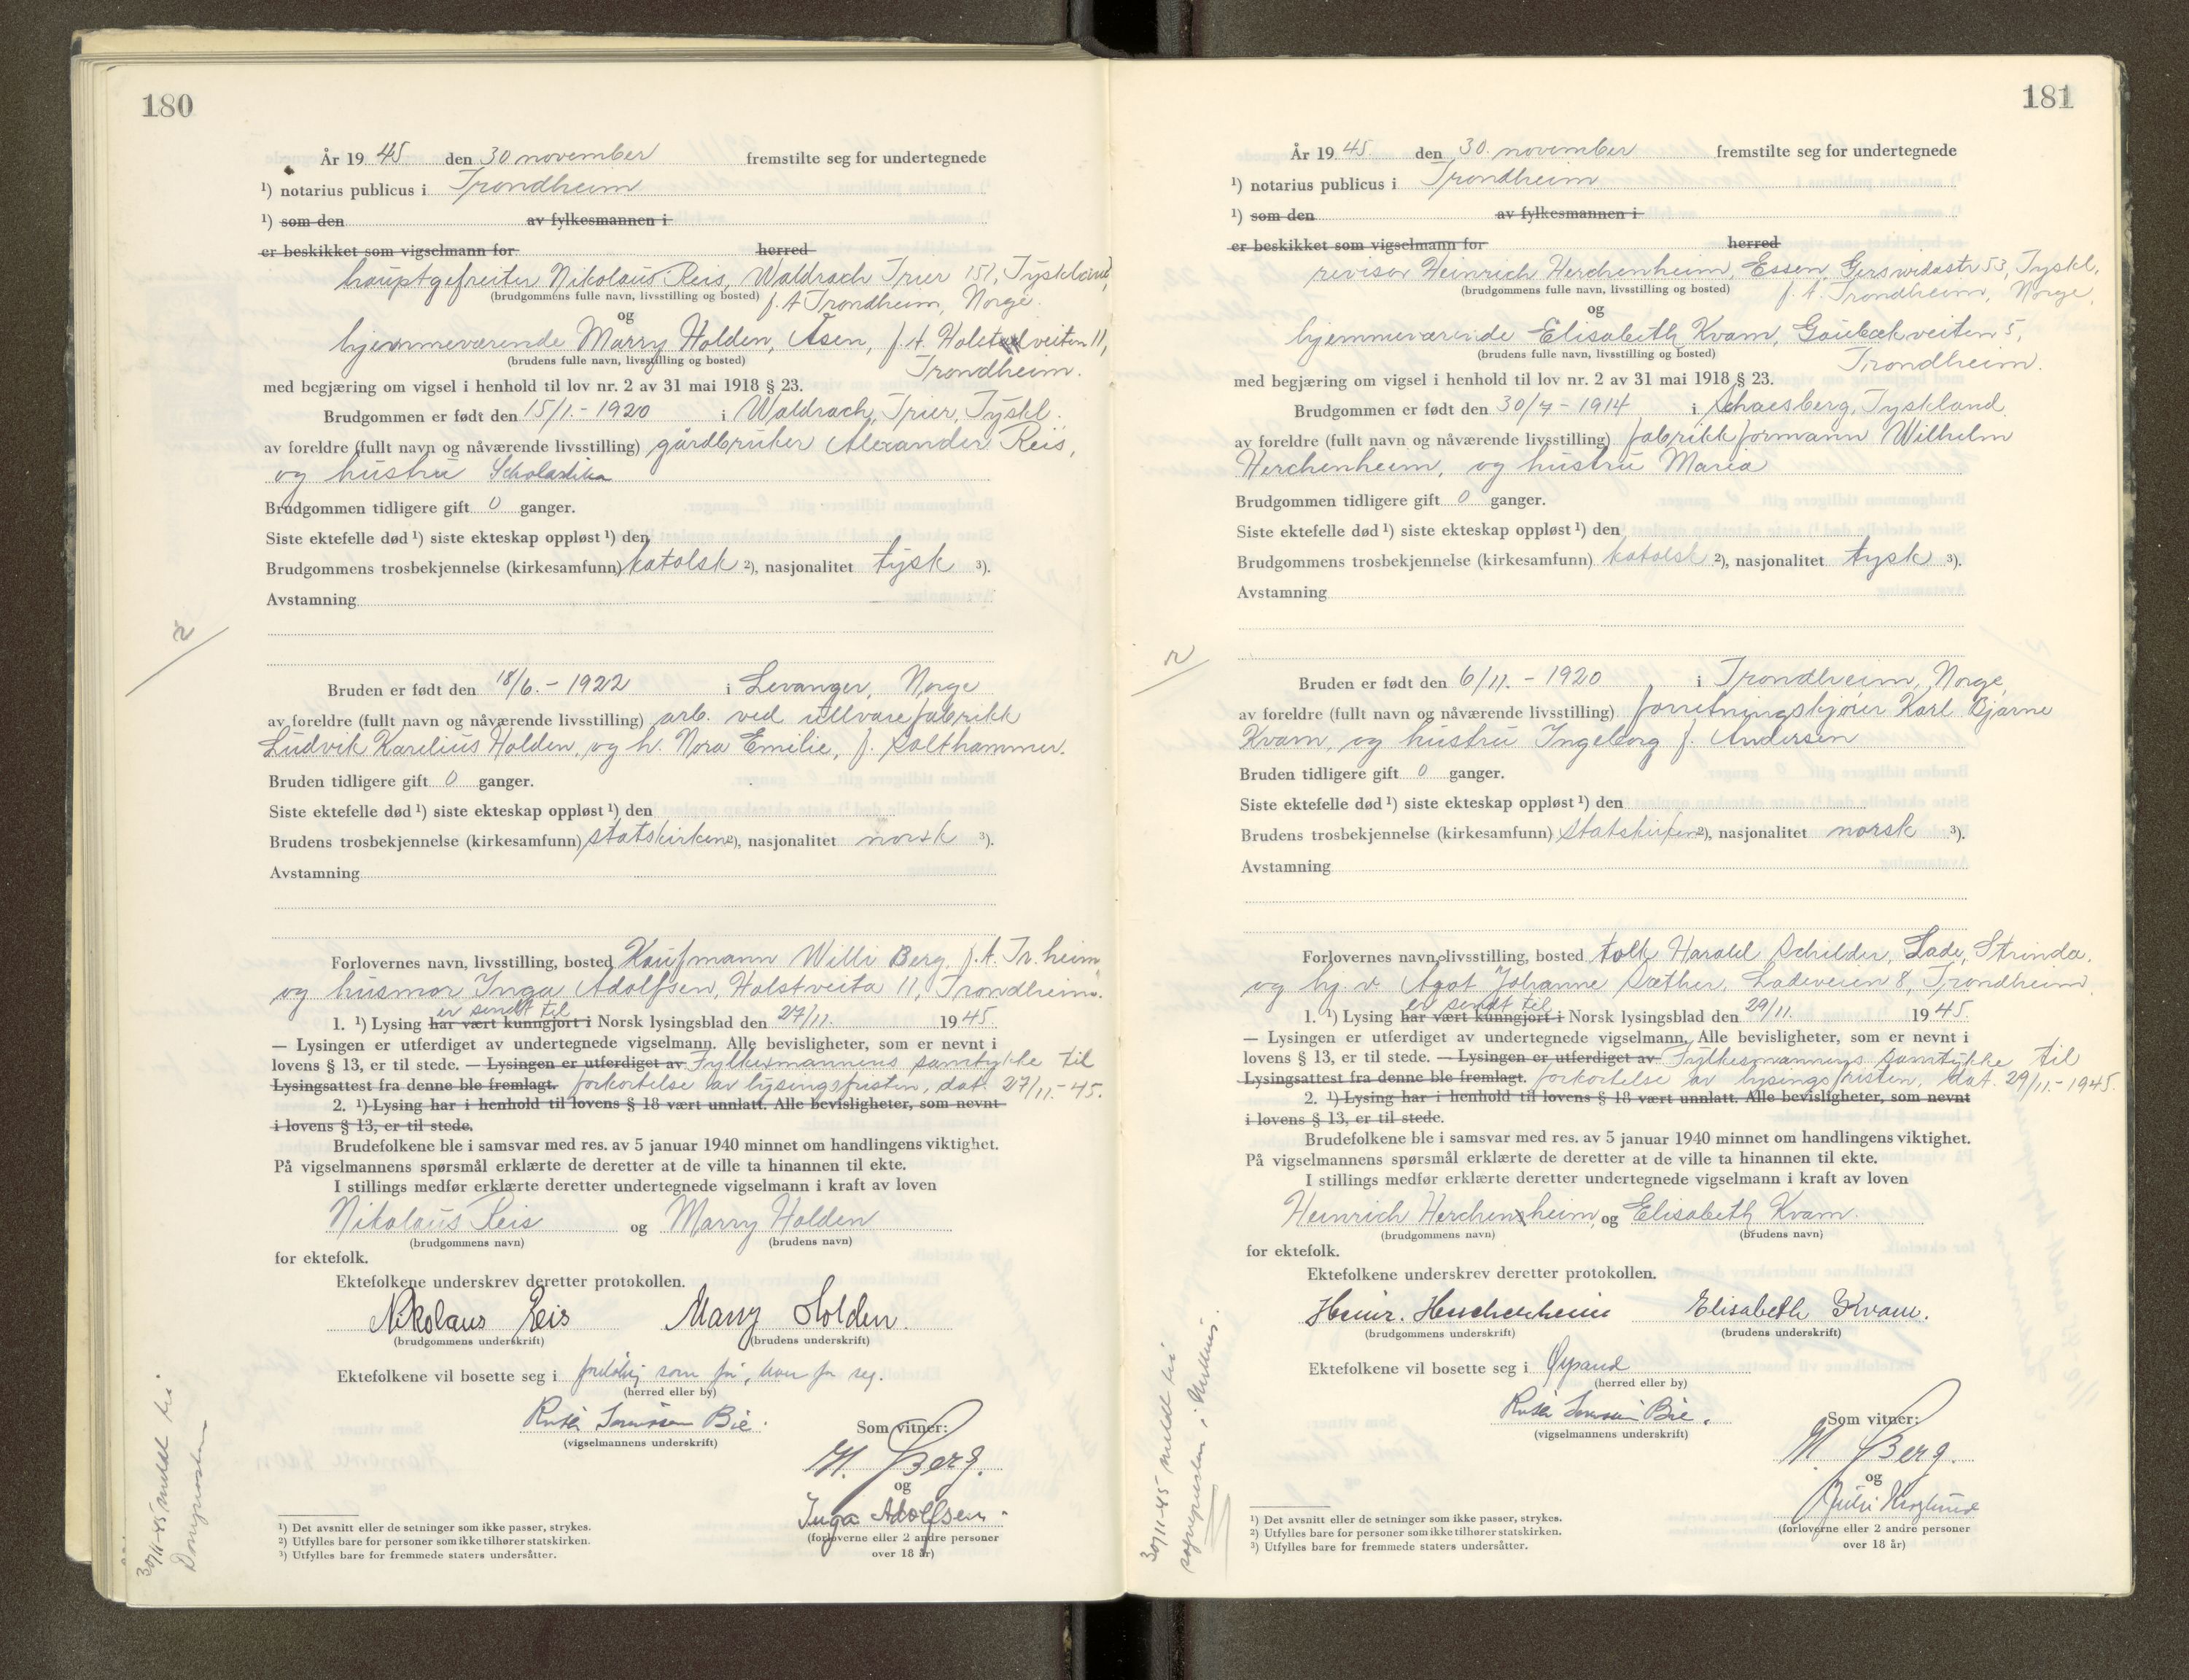 180
År 1945 den 30 november fremstilte seg for undertegnede
¹) notarius publicus i Trondheim
¹) som den av fylkesmannen i
er beskikket som vigselmann for herred
hauptgefreiter Nikolaus Reis, Waldrach Trier 151, Tyskland,
(brudgommens fulle navn, livsstilling og bosted) f. t. Trondheim, Norge.
og
hjemmeværende Marry Holden, Åsen, f. t. Holstveiten 11,
(brudens fulle navn, livsstilling og bosted) Trondheim.
med begjæring om vigsel i henhold til lov nr. 2 av 31 mai 1918 § 23.
Brudgommen er født den 15/1.-1920 i Waldrach, Trier, Tyskl.
av foreldre (fullt navn og nåværende livsstilling) gårdbruker Alexander Reis,
og hustru Scholastika
Brudgommen tidligere gift 0 ganger.
Siste ektefelle død ¹) siste ekteskap oppløst ¹) den
Brudgommens trosbekjennelse (kirkesamfunn) katolsk ²), nasjonalitet tysk ³).
Avstamning
Bruden er født den 18/6.-1922 i Levanger, Norge
av foreldre (fullt navn og nåværende livsstilling) arb. ved ullvarefabrikk
Ludvik Karelius Holden, og h. Nora Emilie, f. Salthammer.
Bruden tidligere gift 0 ganger.
Siste ektefelle død ¹) siste ekteskap oppløst ¹), den
Brudens trosbekjennelse (kirkesamfunn) statskirken ²), nasjonalitet norsk ³).
Avstamning
Forlovernes navn, livsstilling, bosted Kaufmann Willi Berg, f. t. Tr.heim
og husmor Inga Adolfsen, Holstveita 11, Trondheim.
er sendt til
1. ¹) Lysing har vært kunngjort i Norsk lysingsblad den 27/11. 1945.
— Lysingen er utferdiget av undertegnede vigselmann. Alle bevisligheter, som er nevnt i
lovens § 13, er til stede. — Lysingen er utferdiget av Fylkesmannens samtykke til
Lysingsattest fra denne ble fremlagt. forkortelse av lysingsfristen, dat. 27/11.-45.
2. ¹) Lysing har i henhold til lovens § 18 vært unnlatt. Alle bevisligheter, som nevnt
i lovens § 13, er til stede.
Brudefolkene ble i samsvar med res. av 5 januar 1940 minnet om handlingens viktighet.
På vigselmannens spørsmål erklærte de deretter at de ville ta hinannen til ekte.
I stillings medfør erklærte deretter undertegnede vigselmann i kraft av loven
Nikolaus Reis og Marry Holden
(brudgommens navn) (brudens navn)
for ektefolk.
Ektefolkene underskrev deretter protokollen.
Nikolaus Reis Marry Holden.
(brudgommens underskrift) (brudens underskrift)
Ektefolkene vil bosette seg i foreløbig som før, hver for seg.
(herred eller by)
Bie.
(vigselmannens underskrift)
Som vitner:
W. Berg.
og
Inga Adolfsen.
(forloverne eller 2 andre personer
over 18 år)
¹) Det avsnitt eller de setninger som ikke passer, strykes.
²) Utfylles bare for personer som ikke tilhører statskirken.
³) Utfylles bare for fremmede staters undersåtter.
30/11-45 meldt til
Domprosten
181
År 1945 den 30. november fremstilte seg for undertegnede
¹) notarius publicus i Trondheim
¹) som den av fylkesmannen i
er beskikket som vigselmann for herred
revisor Heinrich Herchenheim, Essen, Gerswidastr 53, Tyskl.
(brudgommens fulle navn, livsstilling og bosted) f. t. Trondheim, Norge.
og
hjemmeværende Elisabeth Kvam, Gaubækveiten 5,
(brudens fulle navn, livsstilling og bosted) Trondheim.
med begjæring om vigsel i henhold til lov nr. 2 av 31 mai 1918 § 23.
Brudgommen er født den 30/7-1914 i Schaesberg, Tyskland,
av foreldre (fullt navn og nåværende livsstilling) fabrikkformann Wilhelm
Herchenheim, og hustru Maria
Brudgommen tidligere gift 0 ganger.
Siste ektefelle død ¹) siste ekteskap oppløst ¹) den
Brudgommens trosbekjennelse (kirkesamfunn) katolsk ²), nasjonalitet tysk ³).
Avstamning
Bruden er født den 6/11.-1920 i Trondheim, Norge,
av foreldre (fullt navn og nåværende livsstilling) forretningskjører Karl Bjarne
Kvam, og hustru Ingeborg f. Andersen
Bruden tidligere gift 0 ganger.
Siste ektefelle død ¹) siste ekteskap oppløst ¹) den
Brudens trosbekjennelse (kirkesamfunn) statskirken ²), nasjonalitet norsk ³).
Avstamning
Forlovernes navn, livsstilling, bosted tolk Harald Schilder, Lade, Strinda,
og hj. v. Agot Johanne Sæther, Ladeveien 8, Trondheim
er sendt til
1. ¹) Lysing har vært kunngjort i Norsk lysingsblad den 29/11. 1945.
— Lysingen er utferdiget av undertegnede vigselmann. Alle bevisligheter, som er nevnt i
lovens § 13, er til stede. — Lysingen er utferdiget av Fylkesmannens samtykke til
Lysingsattest fra denne ble fremlagt. forkortelse av lysingsfristen, dat. 29/11.-1945.
2. ¹) Lysing har i henhold til lovens § 18 vært unnlatt. Alle bevisligheter, som nevnt
i lovens § 13, er til stede.
Brudefolkene ble i samsvar med res. av 5 januar 1940 minnet om handlingens viktighet.
På vigselmannens spørsmål erklærte de deretter at de ville ta hinannen til ekte.
I stillings medfør erklærte deretter undertegnede vigselmann i kraft av loven
Heinrich Herchenheim, og Elisabeth Kvam.
(brudgommens navn) (brudens navn)
for ektefolk.
Ektefolkene underskrev deretter protokollen.
Heinr. Herchenheim Elisabeth Kvam.
(brudgommens underskrift) (brudens underskrift)
Ektefolkene vil bosette seg i Øysand
(herred eller by)
Bie.
(vigselmannens underskrift)
Som vitner:
W. Berg.
og
(forloverne eller 2 andre personer
over 18 år)
¹) Det avsnitt eller de setninger som ikke passer, strykes.
²) Utfylles bare for personer som ikke tilhører statskirken.
³) Utfylles bare for fremmede staters undersåtter.
30/11-45 meldt til
sognepresten i Melhus.